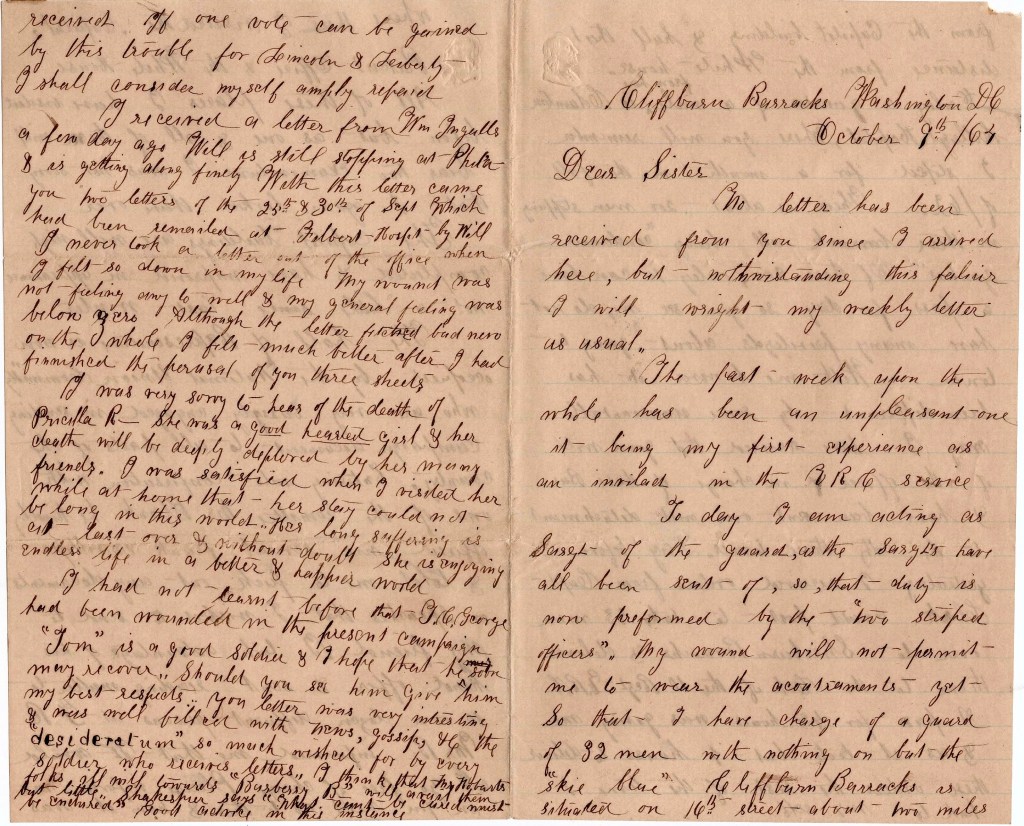 received If one vote can be gained
by this trouble for Lincoln & Leiberty
I shall consider myself amply repaid
I received a letter from Wm Ingalls
a few day ago Will is still stopping at Phila
& is getting along finely With this letter came
you two letters of the 25th & 30th of Sept Which
had been remailed at Filbert Hospt by Will
I never took a letter out of the office when
I felt so down in my life My wound was
not feeling any to well & my general feeling was
belon zero Although the letter fetched bad news
on the whole I felt much better after I had
finnished the perusal of you three sheets
I was very sorry to hear of the death of
Priscilla R She was a good hearted girl & her
death will be deeply deplored by her many
friends. I was satisfied when I visited her
while at home that her stay could not
be long in this world.. Her long suffering is
at last over & without doubt She is enjoying
endless life in a better & happier world
I had not learnt before that T. C. George
had been wounded in the present campaign
"Tom" is a good soldier & I hope that he soon
may recover.. Should you se him give him
my best respects.. You letter was very intresting
& was well filled with news, gossip, &c the
"desideratum" so much wished for by every
soldier who receives letters.. I think that
folks ill will towards "Busberry will avail them
but little Shakespier says "What cant be cured must
be endured" Good advice in this instance
Cliffburn Barracks Washington DC
October 9th /64
Dear Sister
No letter has been
received from you since I arrived
here, but nothwistanding this faliur
I will wright my weekly letter
as usual..
The past week upon the
whole has been an unpleasant one
it being my first experience as
an invilad in the V R C service
To day I am acting as
Sargt of the guard, as the Sargts have
all been sent of, so, that duty is
now preformed by the "two striped
officers".. My wound will not permit
me to wear the acoutraments yet
So that I have charge of a guard
of 32 men with nothing on but the
"skie blue" Cliffburn Barracks is
situated on 16th street about two miles